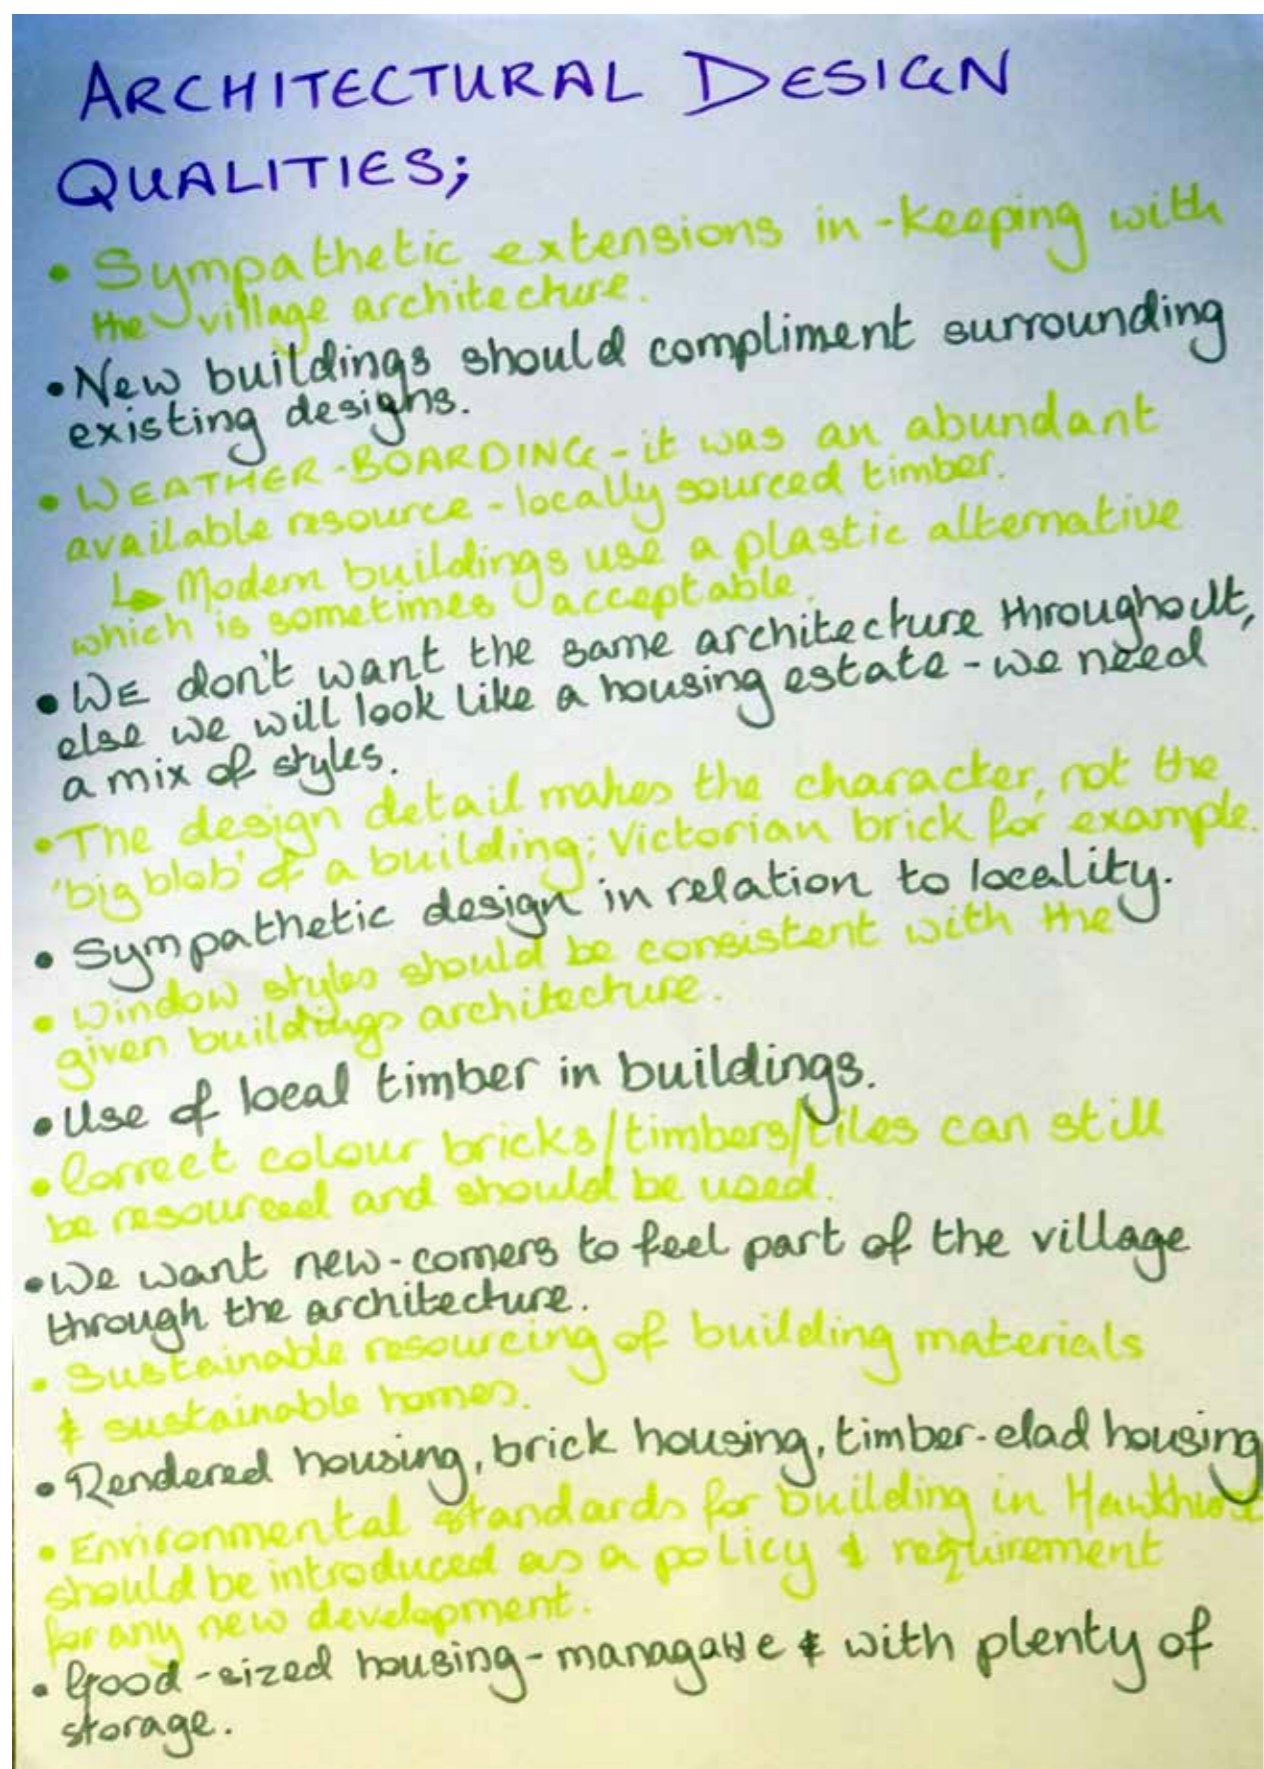 ARCHITECTURAL DESIGN
QUALITIES;
• Sympathetic extensions in-keeping with
the village architecture.
• New buildings should compliment surrounding
existing designs.
• WEATHER-BOARDING - it was an abundant
available resource - locally sourced timber.
↳ Modern buildings use a plastic alternative
which is sometimes acceptable.
• WE don't want the same architecture throughout,
else we will look like a housing estate - we need
a mix of styles.
• The design detail makes the character, not the
'big blob' of a building; Victorian brick for example.
• Sympathetic design in relation to locality.
• Window styles should be consistent with the
given buildings architecture.
• Use of local timber in buildings.
• Correct colour bricks/timbers/tiles can still
be resourced and should be used.
• We want new-comers to feel part of the village
through the architecture.
• Sustainable resourcing of building materials
& sustainable homes.
• Rendered housing, brick housing, timber-clad housing
• Environmental standards for building in
should be introduced as a policy & requirement
for any new development.
• Good-sized housing - managable & with plenty of
storage.